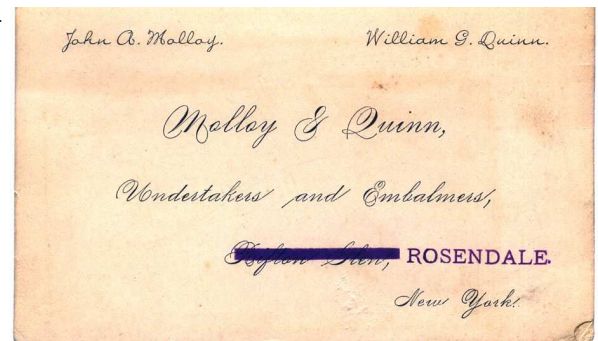 John A. Molloy. William G. Quinn.
Molloy & Quinn,
Undertakers and Embalmers,
Rifton Glen, ROSENDALE.
New York.